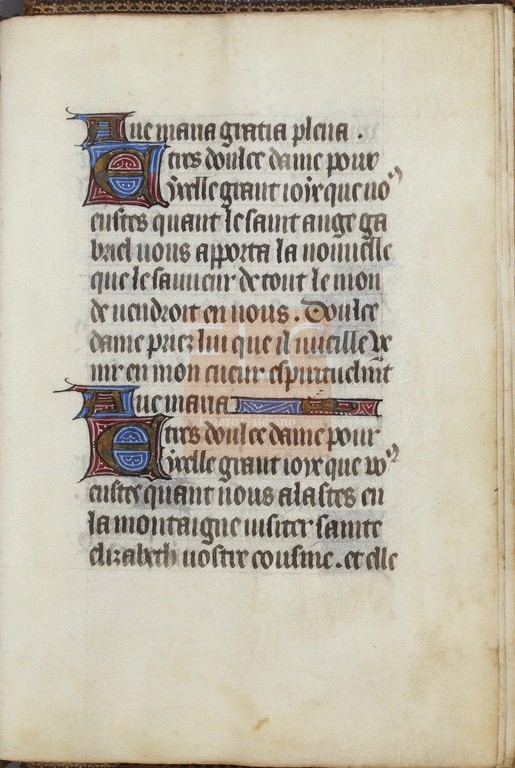 Aue maria gratia plena .
E tres doulce dame pour
ycelle grant ioye que uoˀ
eustes quant le saint ange ga
briel uous apporta la nouuelle
que le sauueur de tout le mon
de uendroit en uous . Doulce
dame priez lui que il uueille ve
nir en mon cueur espirituelmt
Aue maria
E tres doulce dame pour
ycelle grant ioye que voˀ
eustes quant uous alastes en
la montaigne uisiter sainte
elizabeth uostre cousine . et elle